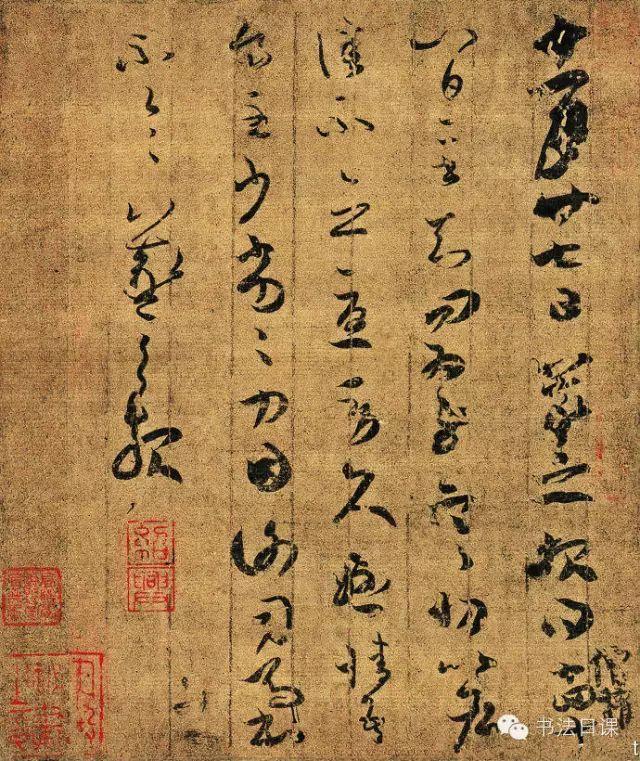 十一月廿七日羲之報得十四
十八日二書知問為慰寒切比各
佳不念憂勞久懸情吾
食至少劣劣力因謝司馬書
不一一羲之報
僧權
紹興
书法日课
t